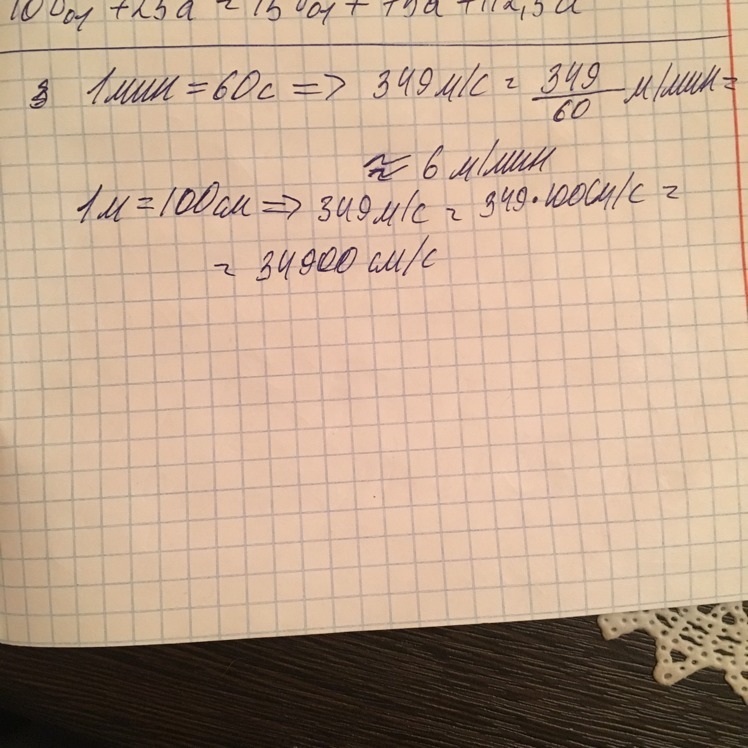 10υ₀₁ + 25a = 15υ₀₁ + 75a + 112,5a
3 1 мин = 60с => 349 м/с = 349/60 м/мин =
≈ 6 м/мин
1 м = 100 см => 349 м/с = 349·100 см/с =
= 34900 см/с